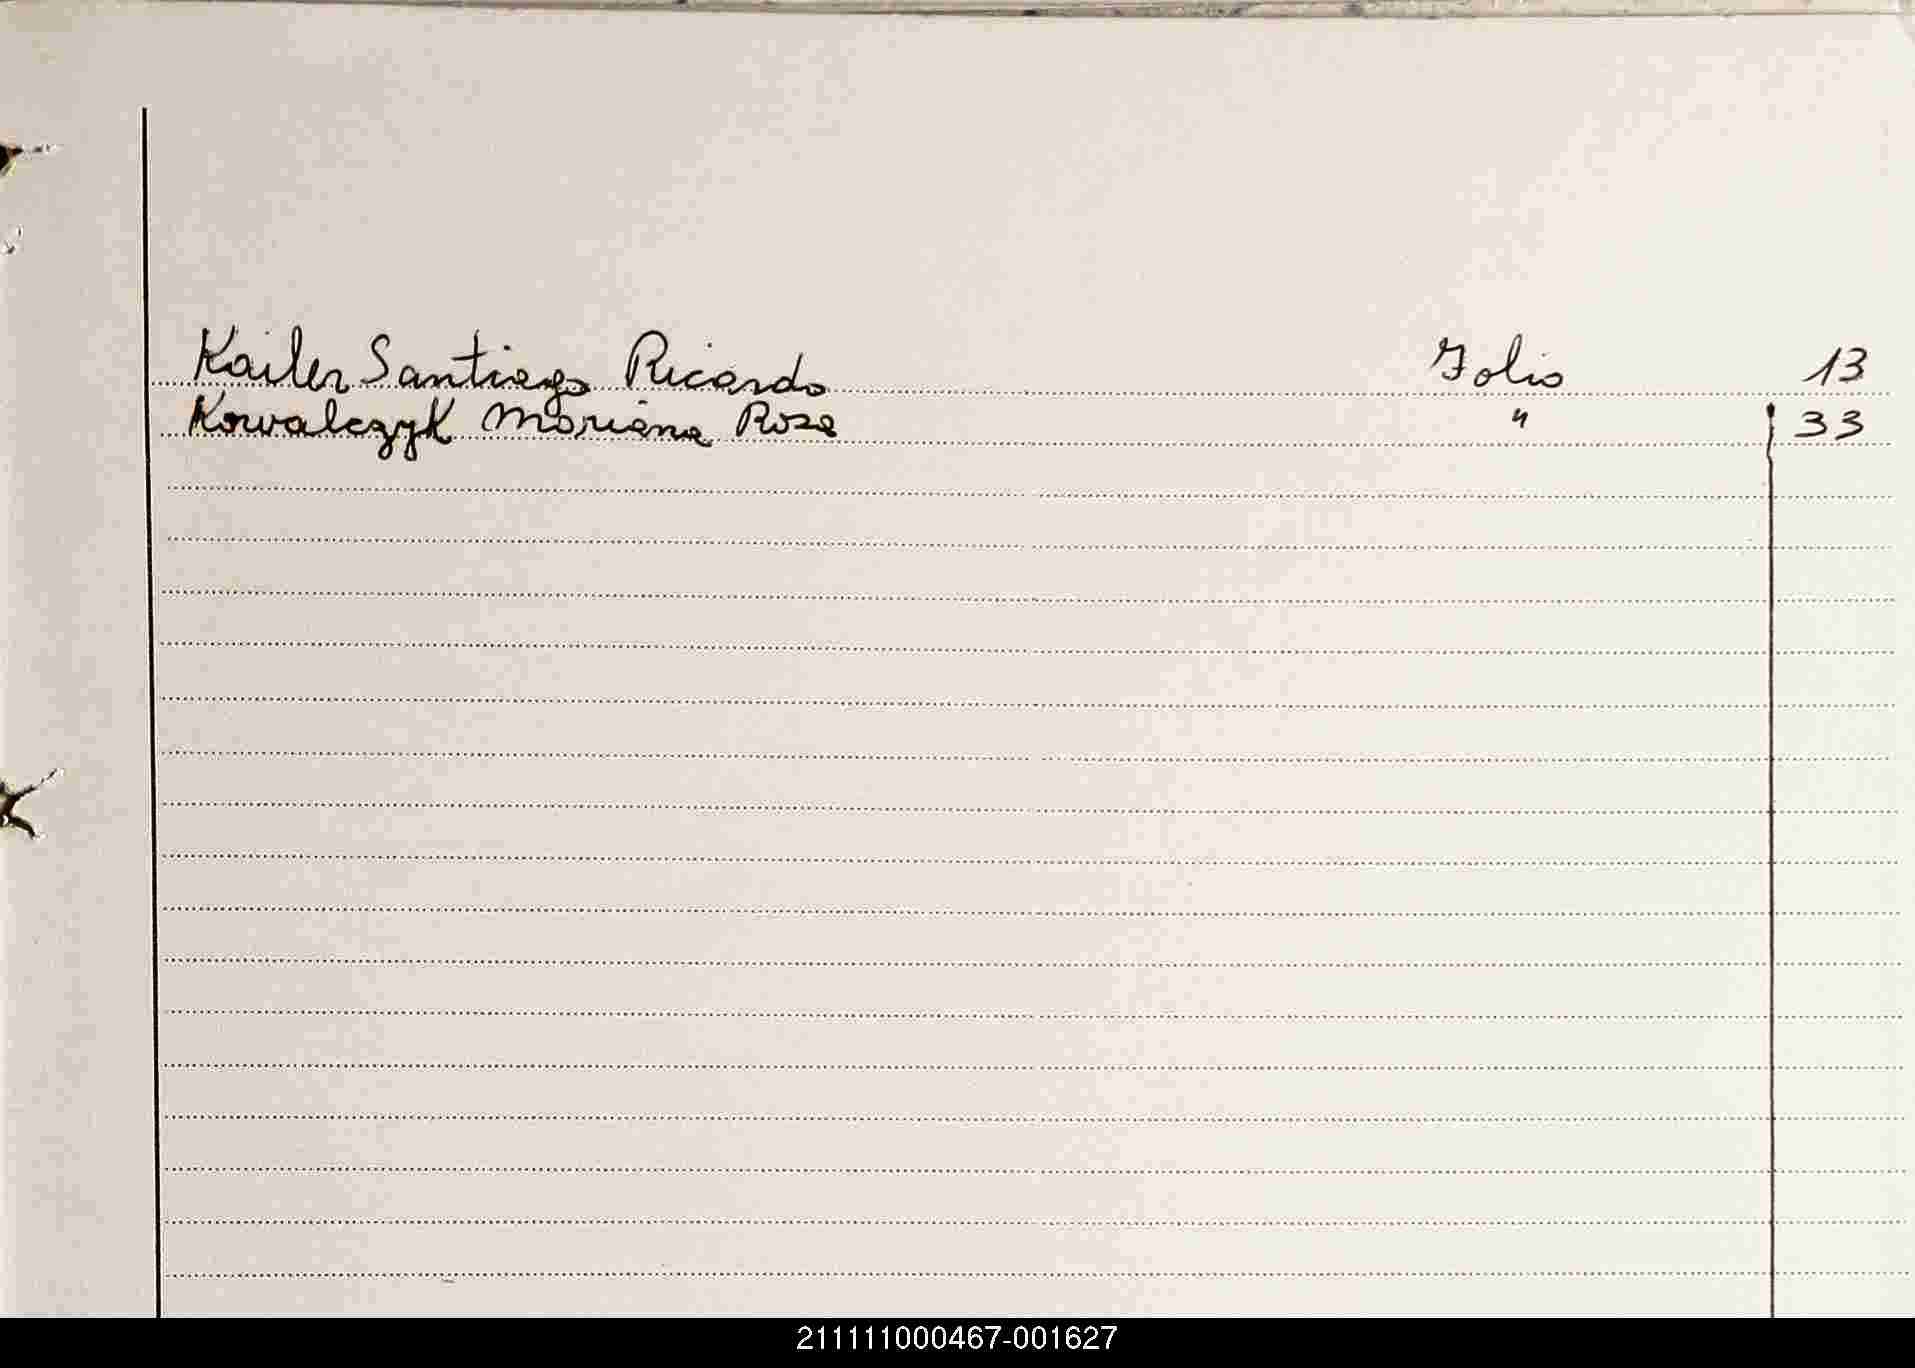 Kailer Santiago Ricardo Folio 13
Kowalczyk Mariana Rosa " 33
211111000467-001627